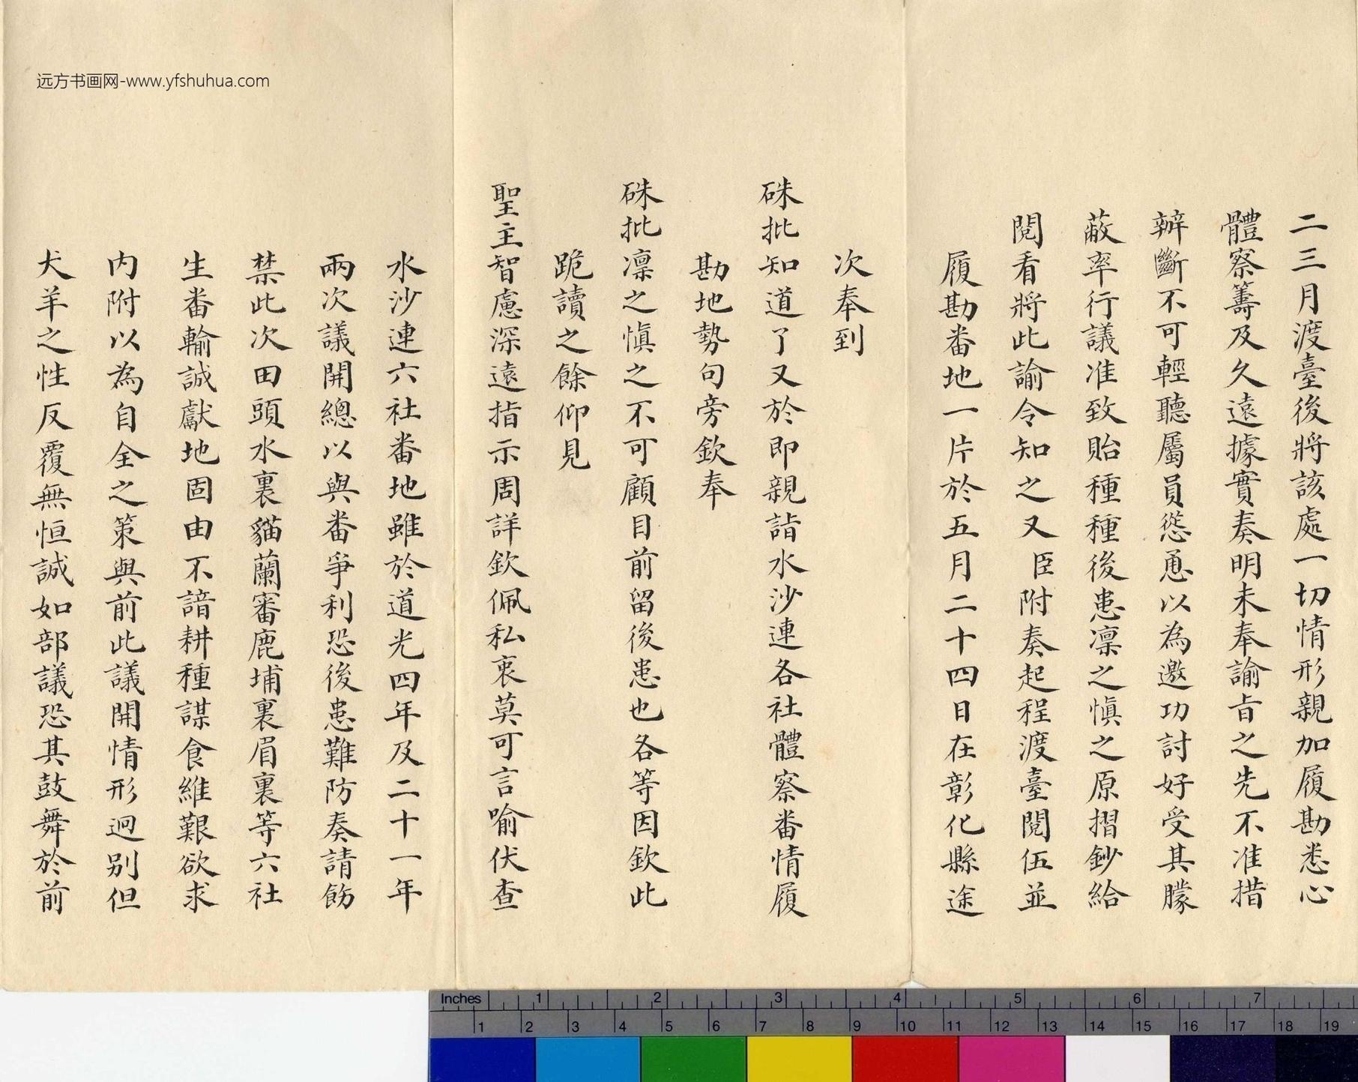 远方书画网-www.yfshuhua.com
二三月渡臺後將該處一切情形親加履勘悉心
體察籌及久遠據實奏明未奉諭旨之先不准措
辦斷不可輕聽屬員慫恿以為邀功討好受其朦
蔽率行議准致貽種種後患凜之慎之原摺鈔給
閱看將此諭令知之又臣附奏起程渡臺閱伍並
履勘番地一片於五月二十四日在彰化縣途
次奉到
硃批知道了又於即親詣水沙連各社體察番情履
勘地勢句旁欽奉
硃批凜之慎之不可顧目前留後患也各等因欽此
跪讀之餘仰見
聖主智慮深遠指示周詳欽佩私衷莫可言喻伏查
水沙連六社番地雖於道光四年及二十一年
兩次議開總以與番爭利恐後患難防奏請飭
禁此次田頭水裏貓蘭審鹿埔裏眉裏等六社
生番輸誠獻地固由不諳耕種謀食維艱欲求
内附以為自全之策與前此議開情形迥别但
犬羊之性反覆無恒誠如部議恐其鼓舞於前
Inches 1 2 3 4 5 6 7
1 2 3 4 5 6 7 8 9 10 11 12 13 14 15 16 17 18 19